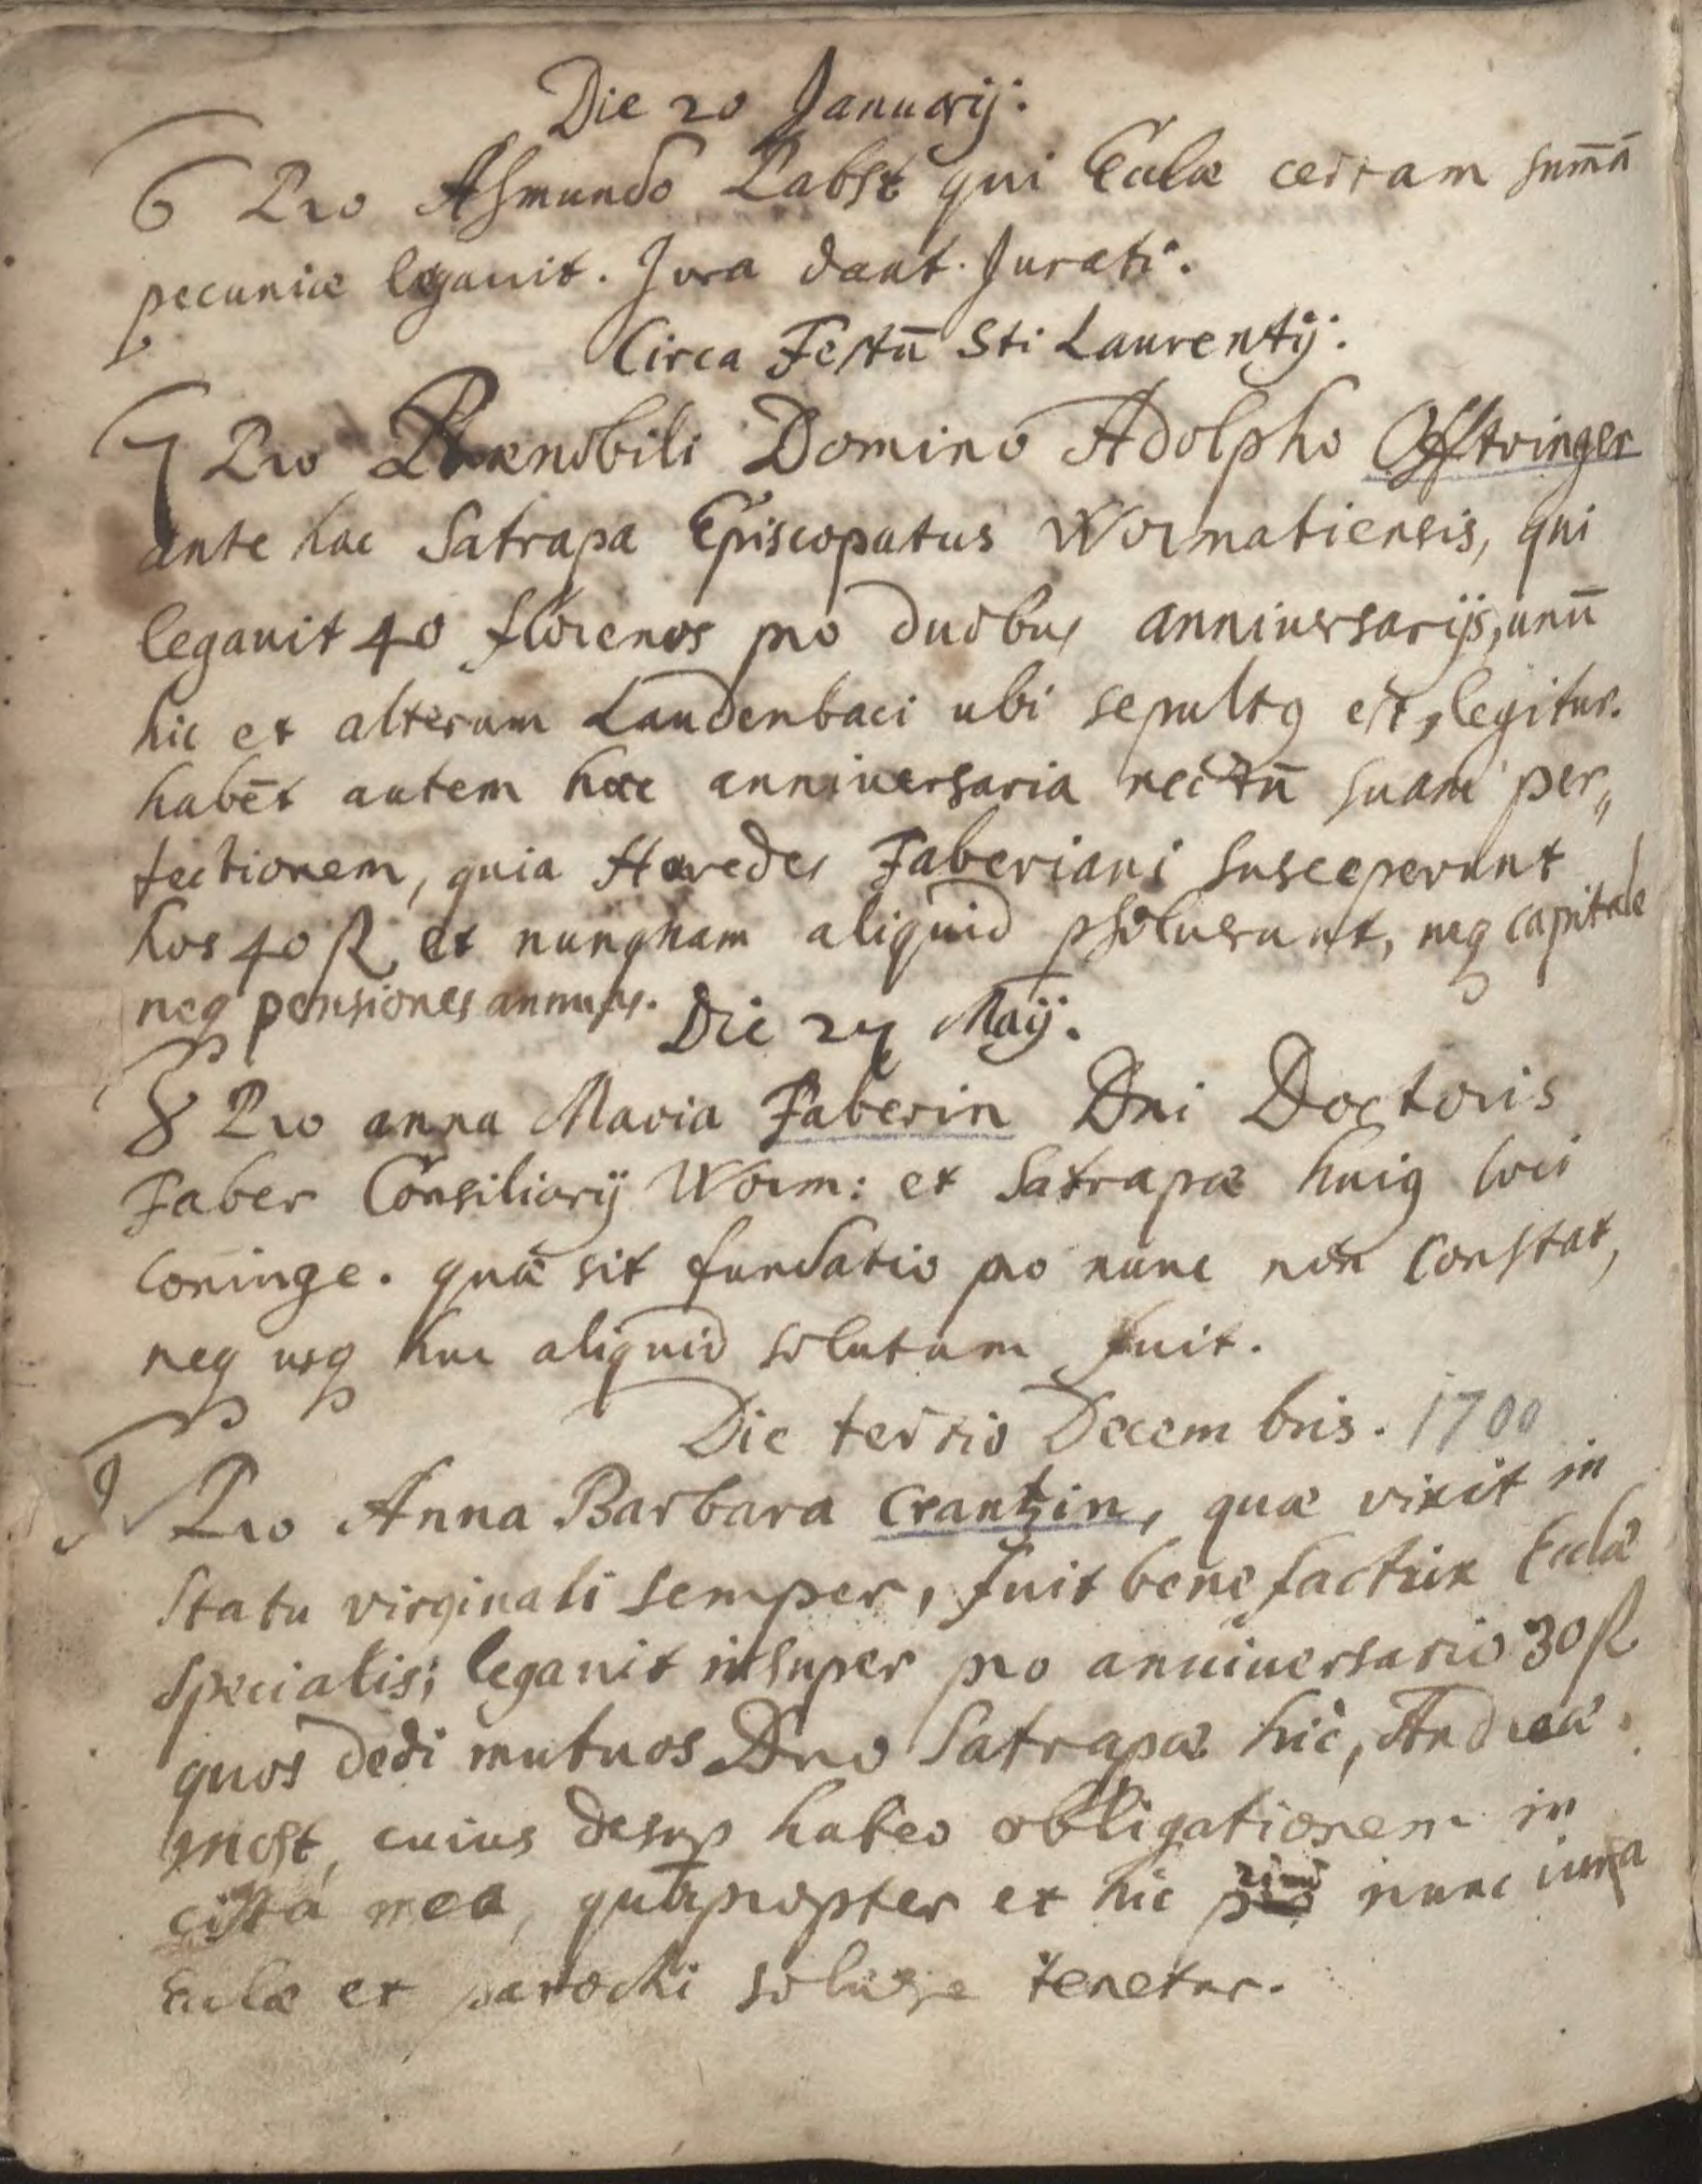 Die 20 Januarij:
6 Pro Asmundo Pabst qui Eccłæ certam sum̄ā
pecuniæ legauit. Jura dant Jurati.
Circa Festū Sti Laurentij:
7 Pro Prænobili Domino Adolpho Offtringer
ante hac Satrapa Episcopatus Wormatiensis, qui
legauit 40 florenos pro duobus anniuersarijs, unū
hic et alterum Laudenbaci ubi sepultq est, legitur.
habēt autem hæc anniuersaria nectū suam per„
fectionem, quia Hæredes Faberiani susceperunt
hos 40 fl, et nunquam aliquid psoluerunt, neq capitale
neq pensiones annuas. Die 27 Maij.
8 Pro anna Maria Faberin Dni Doctoris
Faber Consiliarij Worm: et Satrapæ huiq loci
coniuge. quæ sit fundatio pro nunc non Constat,
neq usq huc aliquid solutum fuit.
Die tertio Decembris. 1700
9 Pro Anna Barbara Crantzin, quæ vixit in
statu virginali semper, fuit benefactrix Eccłæ
specialis; legauit insuper pro anniuersario 30 fl
quos dedi mutuos Dno Satrapæ hic, Andreæ
most, cuius desup habeo obligationem in
cista mea, quapropter et hic pro nunc iura
Eccłæ et parochi soluere tenetur.